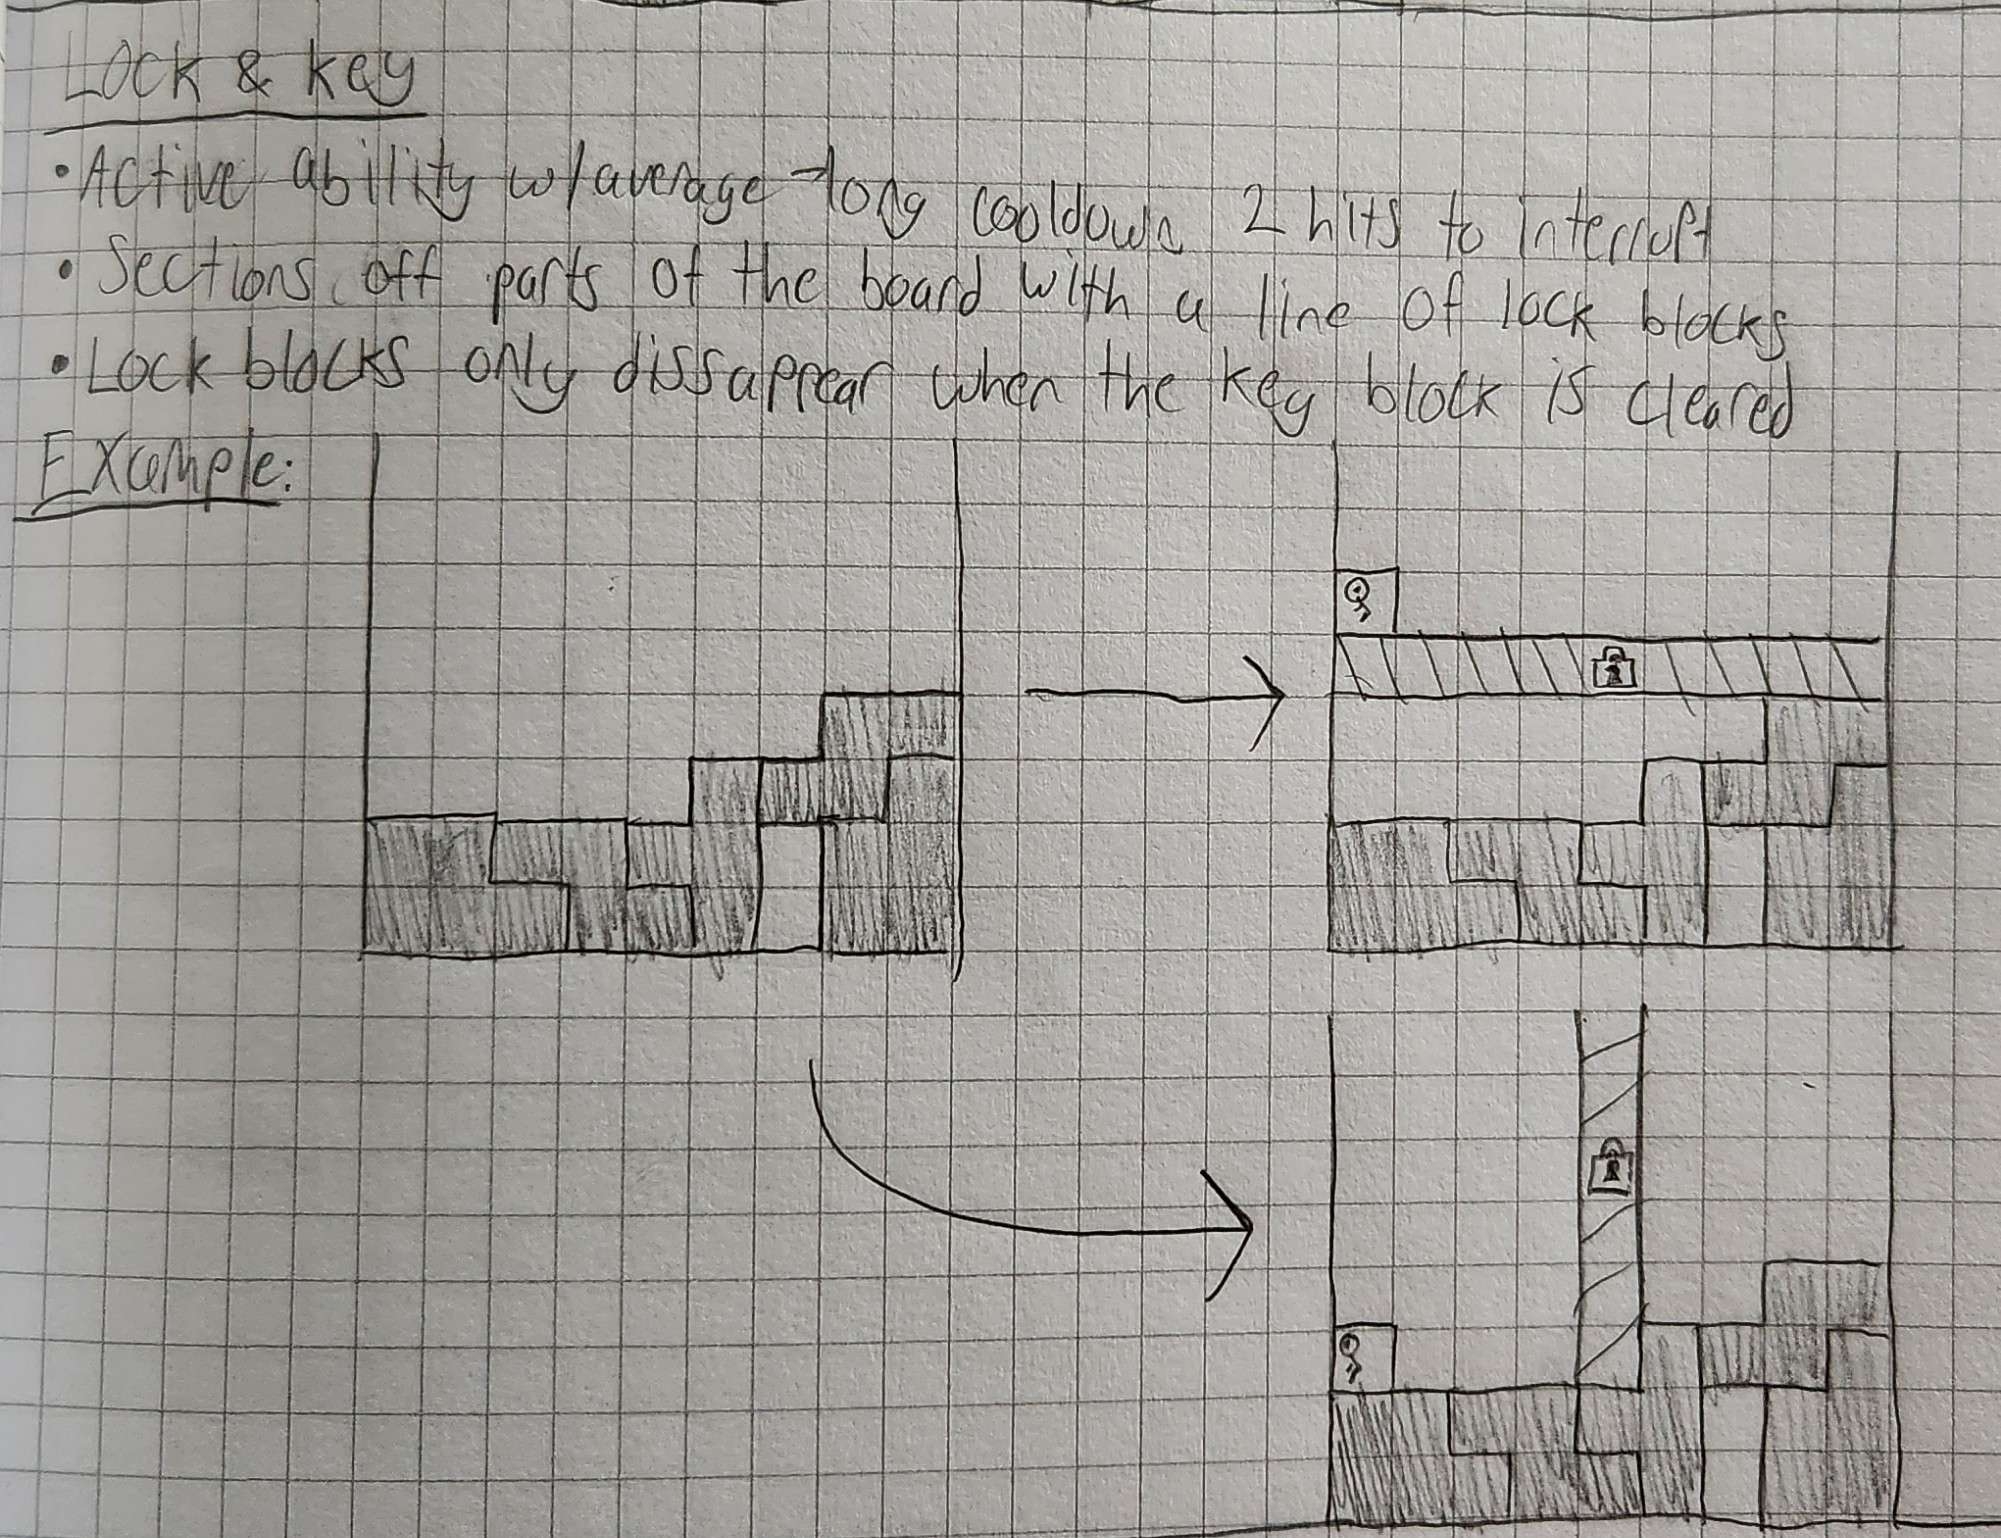 Lock & key
• Active ability w/average → long cooldown 2 hits to interrupt
• Sections off parts of the board with a line of lock blocks
• Lock blocks only dissappear when the key block is cleared
Example: